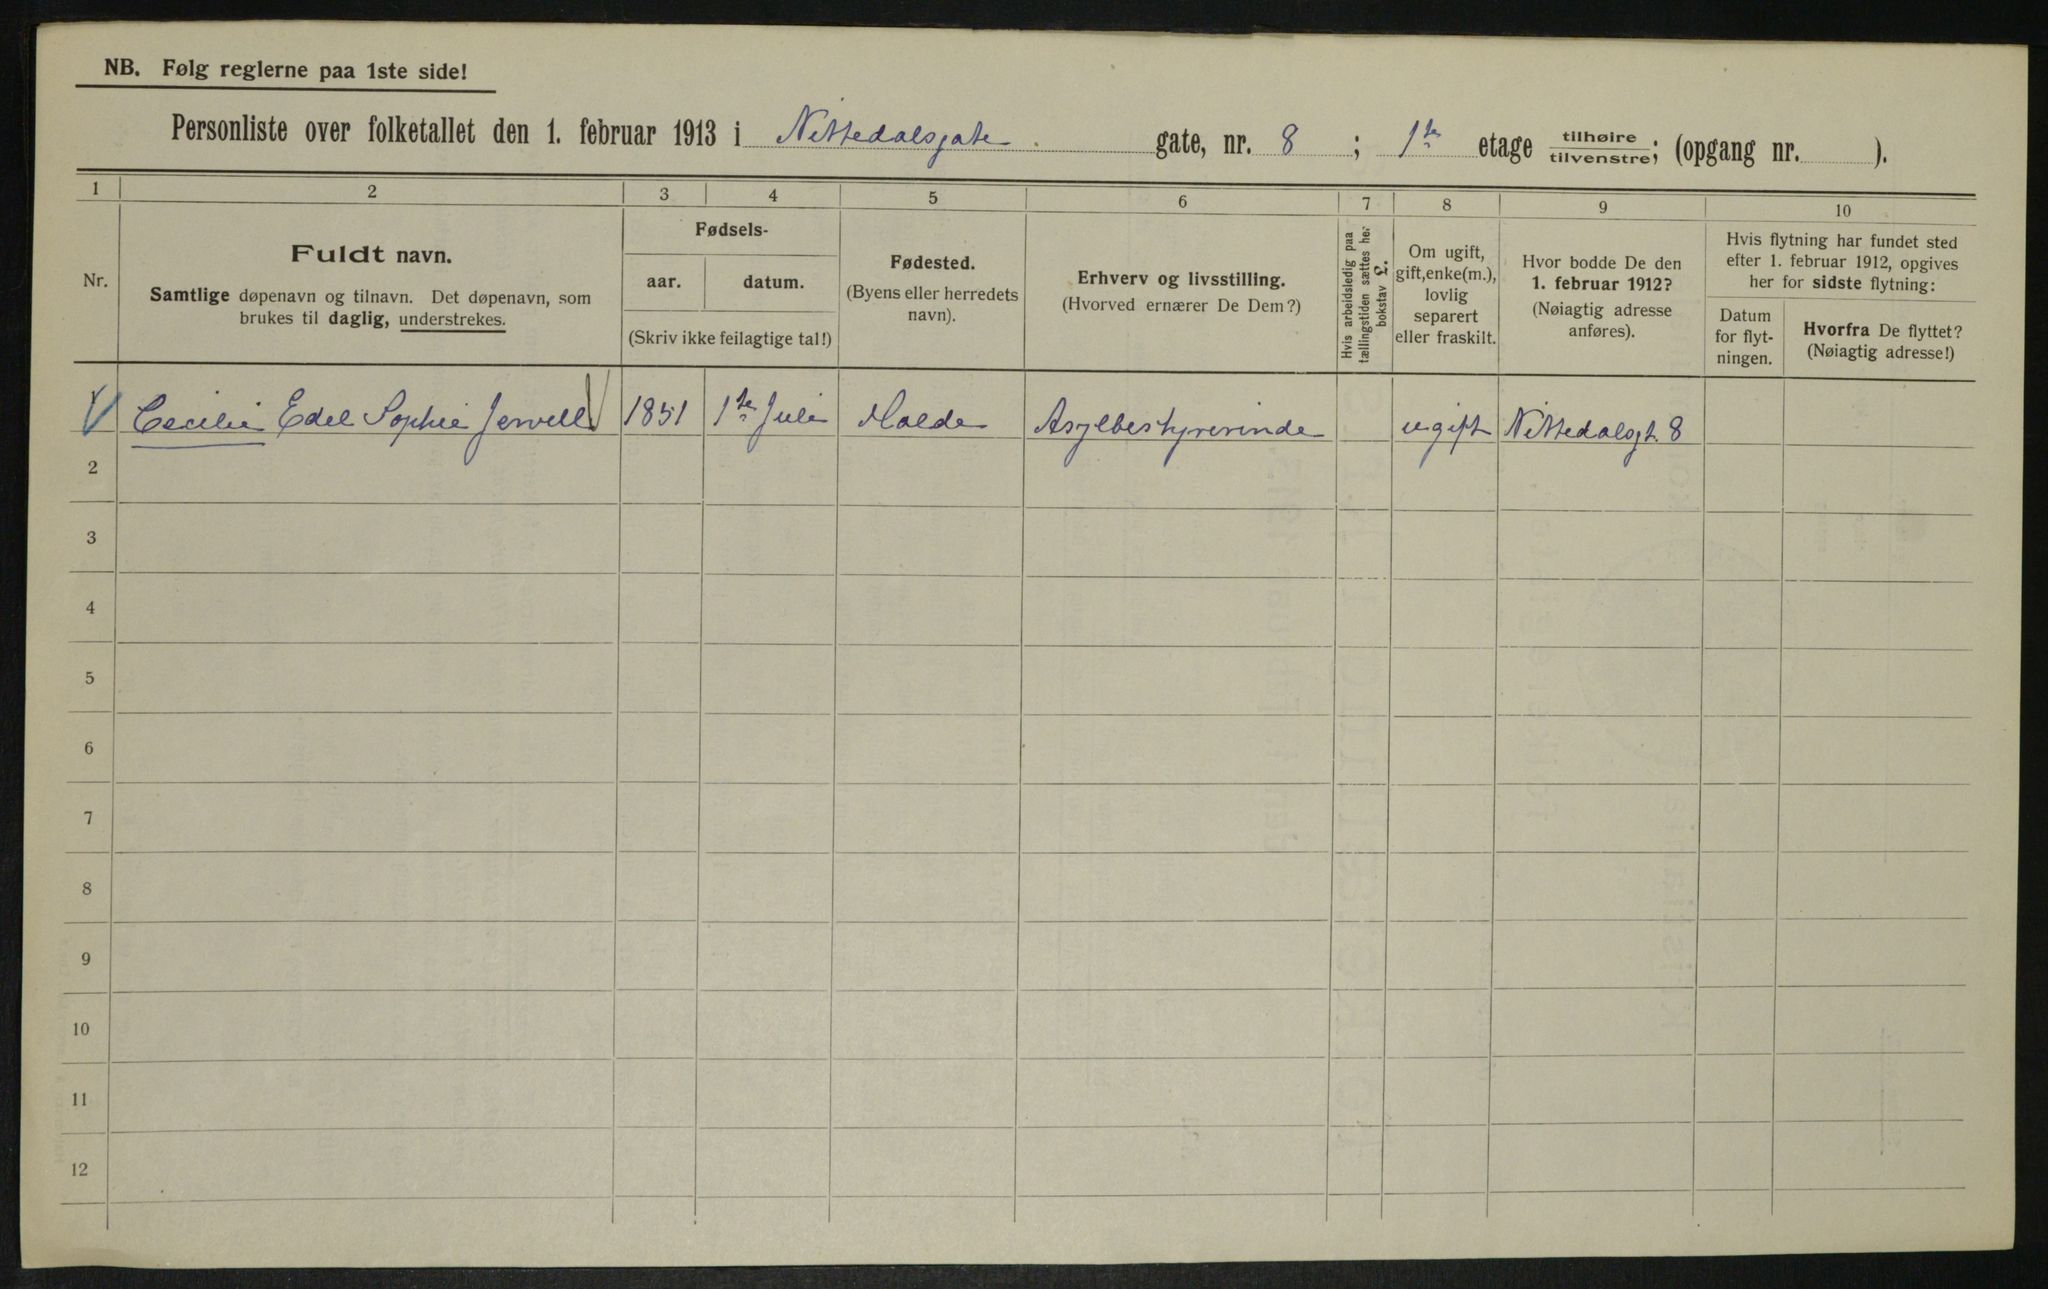 NB. Følg reglerne paa 1ste side!
Personliste over folketallet den 1. februar 1913 i Nittedalsgate gate, nr. 8 ; 1te etage tilhøire / tilvenstre ; (opgang nr. ).
1 2 3 4 5 6 7 8 9 10
Nr.
Fuldt navn.
Samtlige døpenavn og tilnavn. Det døpenavn, som
brukes til daglig, understrekes.
Fødsels-
aar. datum.
(Skriv ikke feilagtige tal!)
Fødested.
(Byens eller herredets
navn).
Erhverv og livsstilling.
(Hvorved ernærer De Dem?)
Hvis arbeidsledig paa
tællingstiden sættes her
bokstav £.
Om ugift,
gift, enke(m.),
lovlig
separert
eller fraskilt.
Hvor bodde De den
1. februar 1912?
(Nøiagtig adresse
anføres).
Hvis flytning har fundet sted
efter 1. februar 1912, opgives
her for sidste flytning:
Datum
for flyt-
ningen.
Hvorfra De flyttet?
(Nøiagtig adresse!)
Cecilie Edel Sophie Jervell 1851 1te Juli Molde Asylbestyrerinde ugift Nittedalsgt. 8
2
3
4
5
6
7
8
9
10
11
12